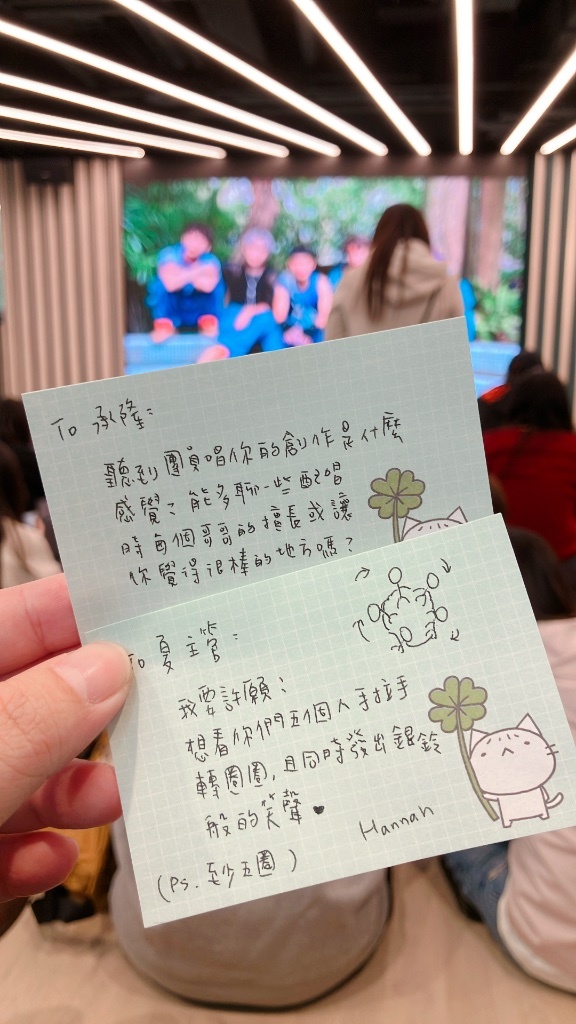 To 承隆:
聽到團員唱你的創作是什麼
感覺? 能多聊一些配唱
時每個哥哥的擅長或讓
你覺得很棒的地方嗎?
To 夏主管:
我要許願:
想看你們五個人手拉手
轉圈圈,且同時發出銀鈴
般的笑聲 ♥
Hannah
(Ps. 至少五圈)